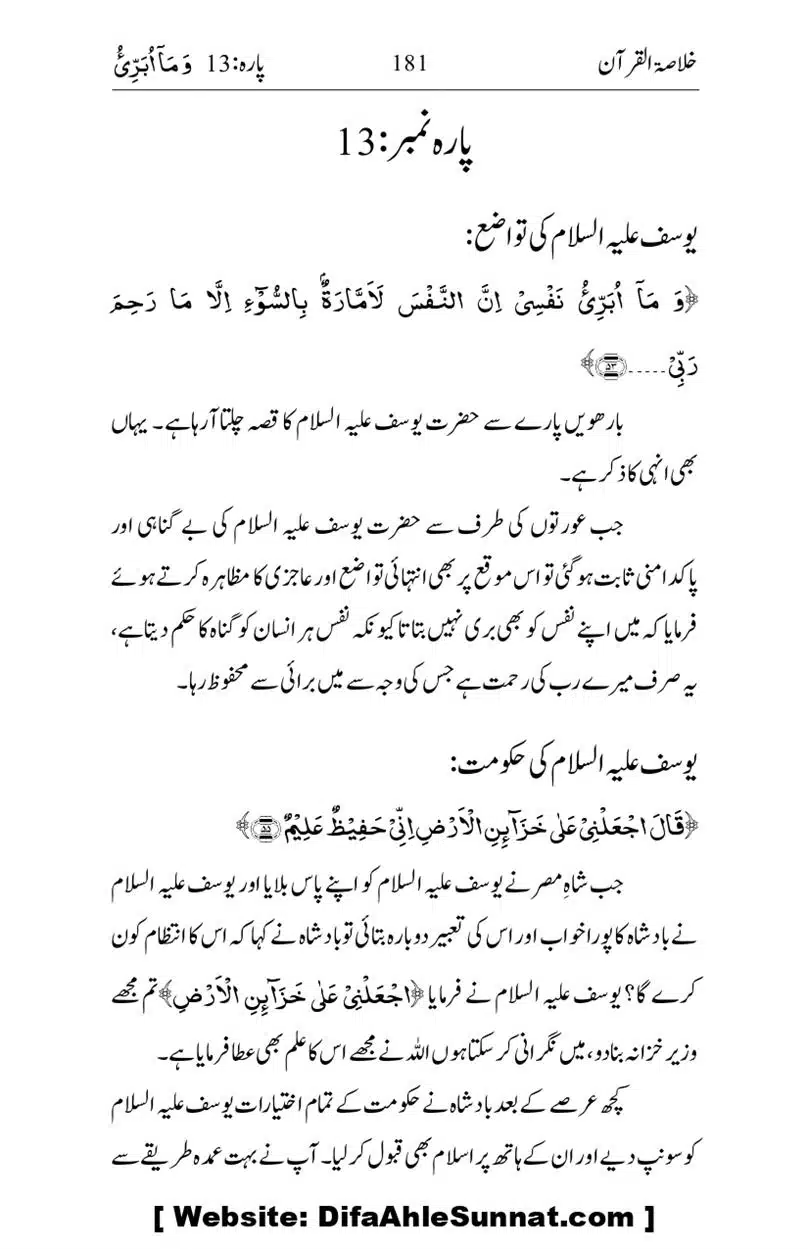 خلاصۃ القرآن 181 پارہ:13 وَ مَآ اُبَرِّئُ
پارہ نمبر:13
یوسف علیہ السلام کی تواضع:
﴿وَ مَآ اُبَرِّئُ نَفْسِیْ اِنَّ النَّفْسَ لَاَمَّارَۃٌۢ بِالسُّوْٓءِ اِلَّا مَا رَحِمَ
رَبِّیْ.....﴿۵۳﴾﴾
بارھویں پارے سے حضرت یوسف علیہ السلام کا قصہ چلتا آرہا ہے۔ یہاں
بھی انہی کا ذکر ہے۔
جب عورتوں کی طرف سے حضرت یوسف علیہ السلام کی بے گناہی اور
پاکدامنی ثابت ہوگئی تو اس موقع پر بھی انتہائی تواضع اور عاجزی کا مظاہرہ کرتے ہوئے
فرمایا کہ میں اپنے نفس کو بھی بری نہیں بتاتا کیونکہ نفس ہر انسان کو گناہ کا حکم دیتا ہے،
یہ صرف میرے رب کی رحمت ہے جس کی وجہ سے میں برائی سے محفوظ رہا۔
یوسف علیہ السلام کی حکومت:
﴿قَالَ اجْعَلْنِیْ عَلٰی خَزَآئِنِ الْاَرْضِ اِنِّیْ حَفِیْظٌ عَلِیْمٌ ﴿۵۵﴾﴾
جب شاہِ مصر نے یوسف علیہ السلام کو اپنے پاس بلایا اور یوسف علیہ السلام
نے بادشاہ کا پورا خواب اور اس کی تعبیر دوبارہ بتائی تو بادشاہ نے کہا کہ اس کا انتظام کون
کرے گا؟ یوسف علیہ السلام نے فرمایا ﴿اجْعَلْنِیْ عَلٰی خَزَآئِنِ الْاَرْضِ﴾ تم مجھے
وزیر خزانہ بنا دو، میں نگرانی کر سکتا ہوں اللہ نے مجھے اس کا علم بھی عطا فرمایا ہے۔
کچھ عرصے کے بعد بادشاہ نے حکومت کے تمام اختیارات یوسف علیہ السلام
کو سونپ دیے اور ان کے ہاتھ پر اسلام بھی قبول کر لیا۔ آپ نے بہت عمدہ طریقے سے
[ Website: DifaAhleSunnat.com ]